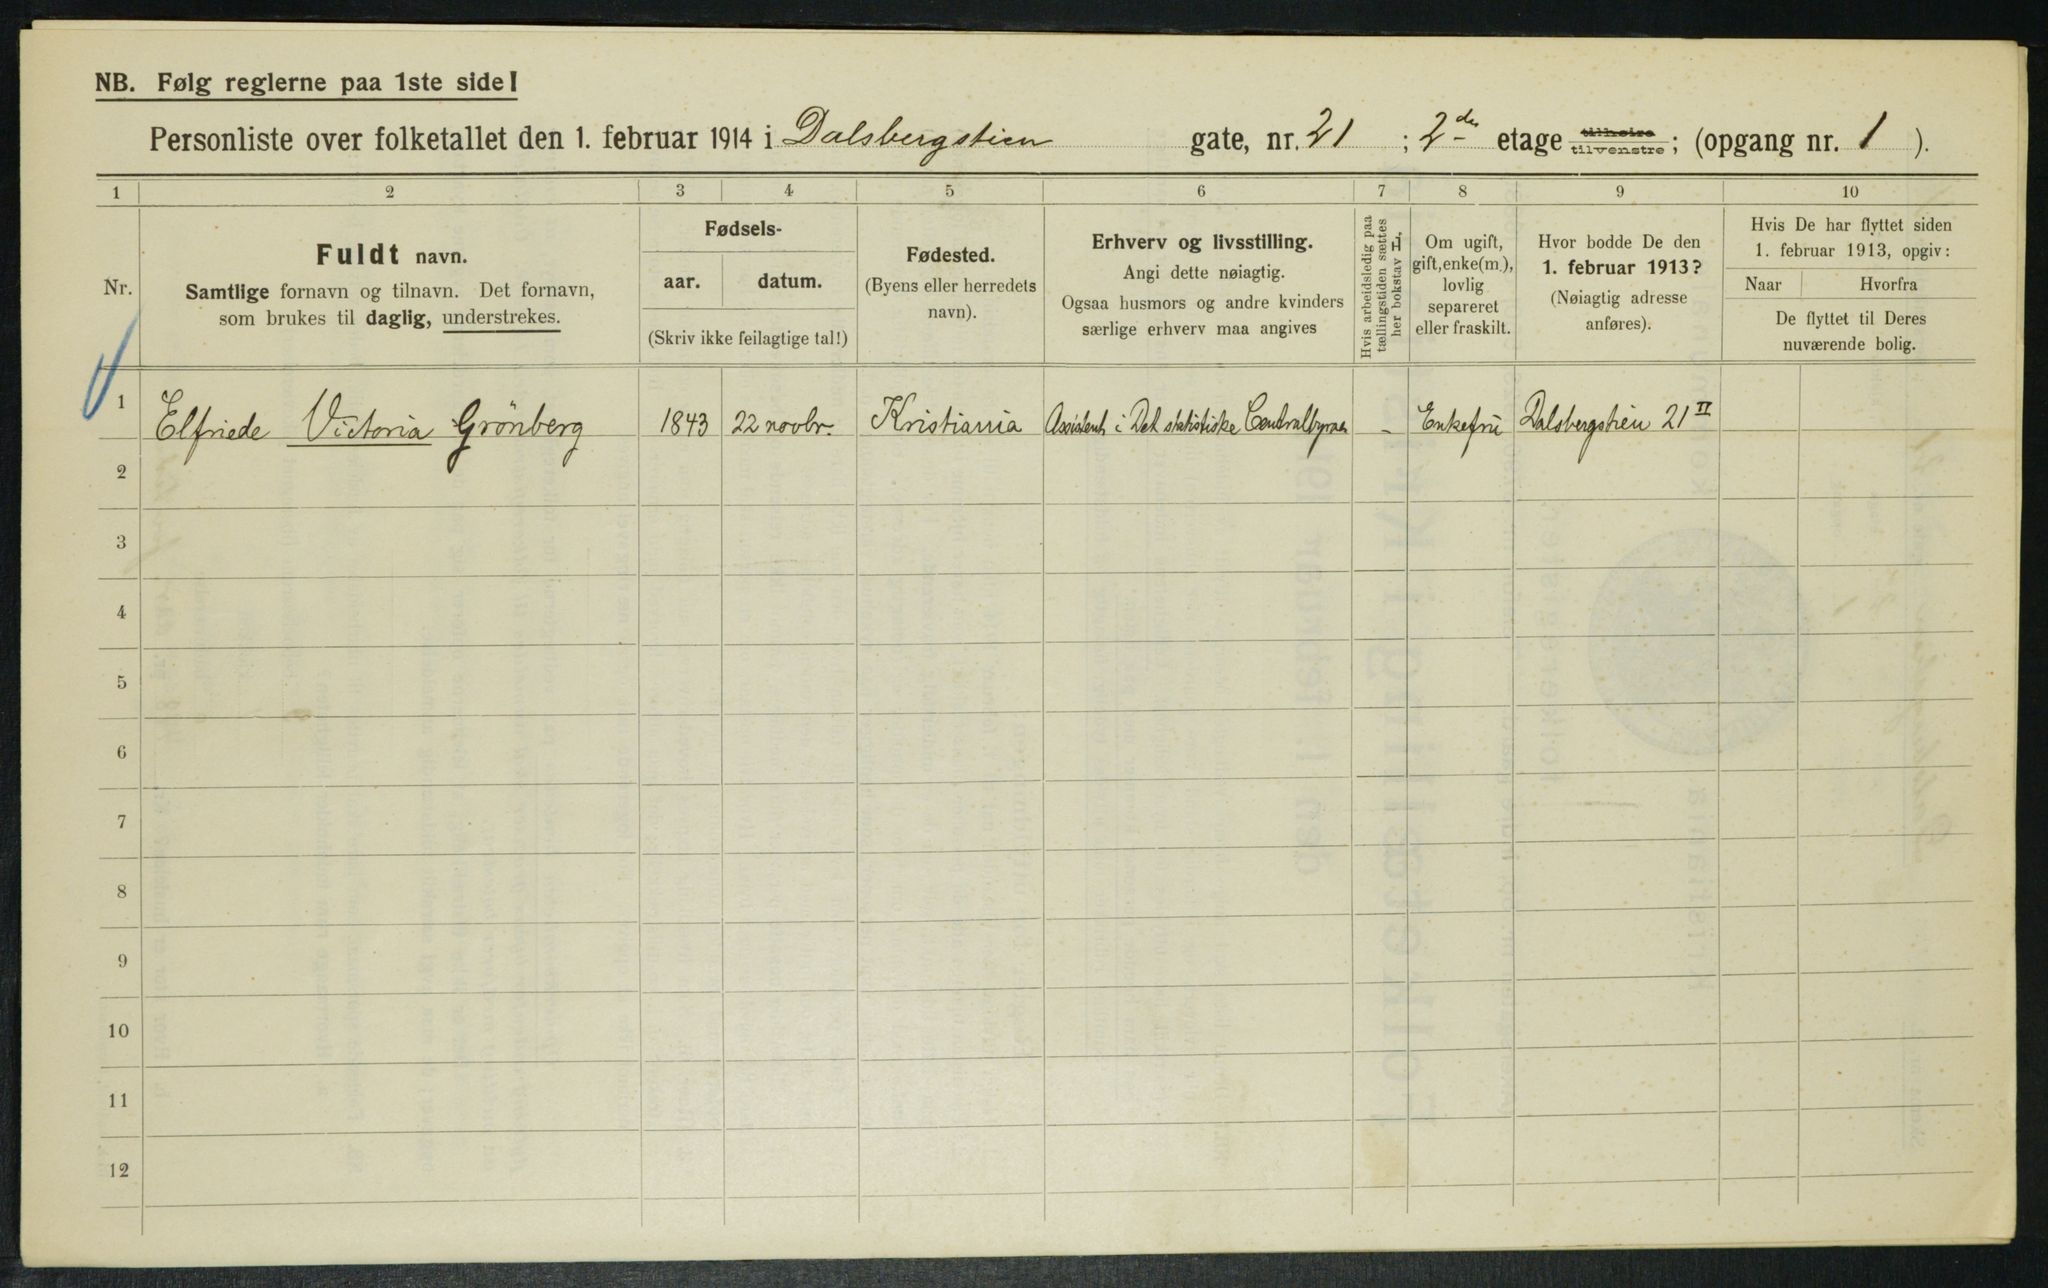 NB. Følg reglerne paa 1ste side!
Personliste over folketallet den 1. februar 1914 i Dalsbergstien gate, nr. 21 ; 2den etage tilhøire tilvenstre; (opgang nr. 1 ).
1 2 3 4 5 6 7 8 9 10
Nr.
Fuldt navn.
Samtlige fornavn og tilnavn. Det fornavn,
som brukes til daglig, understrekes.
Fødsels-
aar. datum.
(Skriv ikke feilagtige tal!)
Fødested.
(Byens eller herredets
navn).
Erhverv og livsstilling.
Angi dette nøiagtig.
Ogsaa husmors og andre kvinders
særlige erhverv maa angives
Hvis arbeidsledig paa
tællingstiden sættes
her bokstav L.
Om ugift,
gift, enke(m.),
lovlig
separeret
eller fraskilt.
Hvor bodde De den
1. februar 1913?
(Nøiagtig adresse
anføres).
Hvis De har flyttet siden
1. februar 1913, opgiv:
Naar Hvorfra
De flyttet til Deres
nuværende bolig.
1 Elfriede Victoria Grönberg 1843 22 novbr. Kristiania Assistent i Det statistiske Centralbyraa - Enkefru Dalsbergstien 21 II
2
3
4
5
6
7
8
9
10
11
12